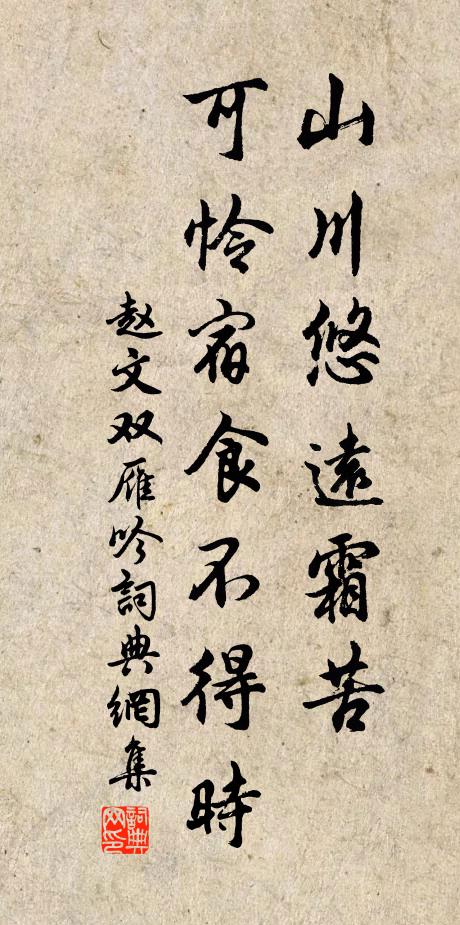 山川悠遠霜苦
可怜宿食不得時
赵文双雁吟詞典網集
詞典網印